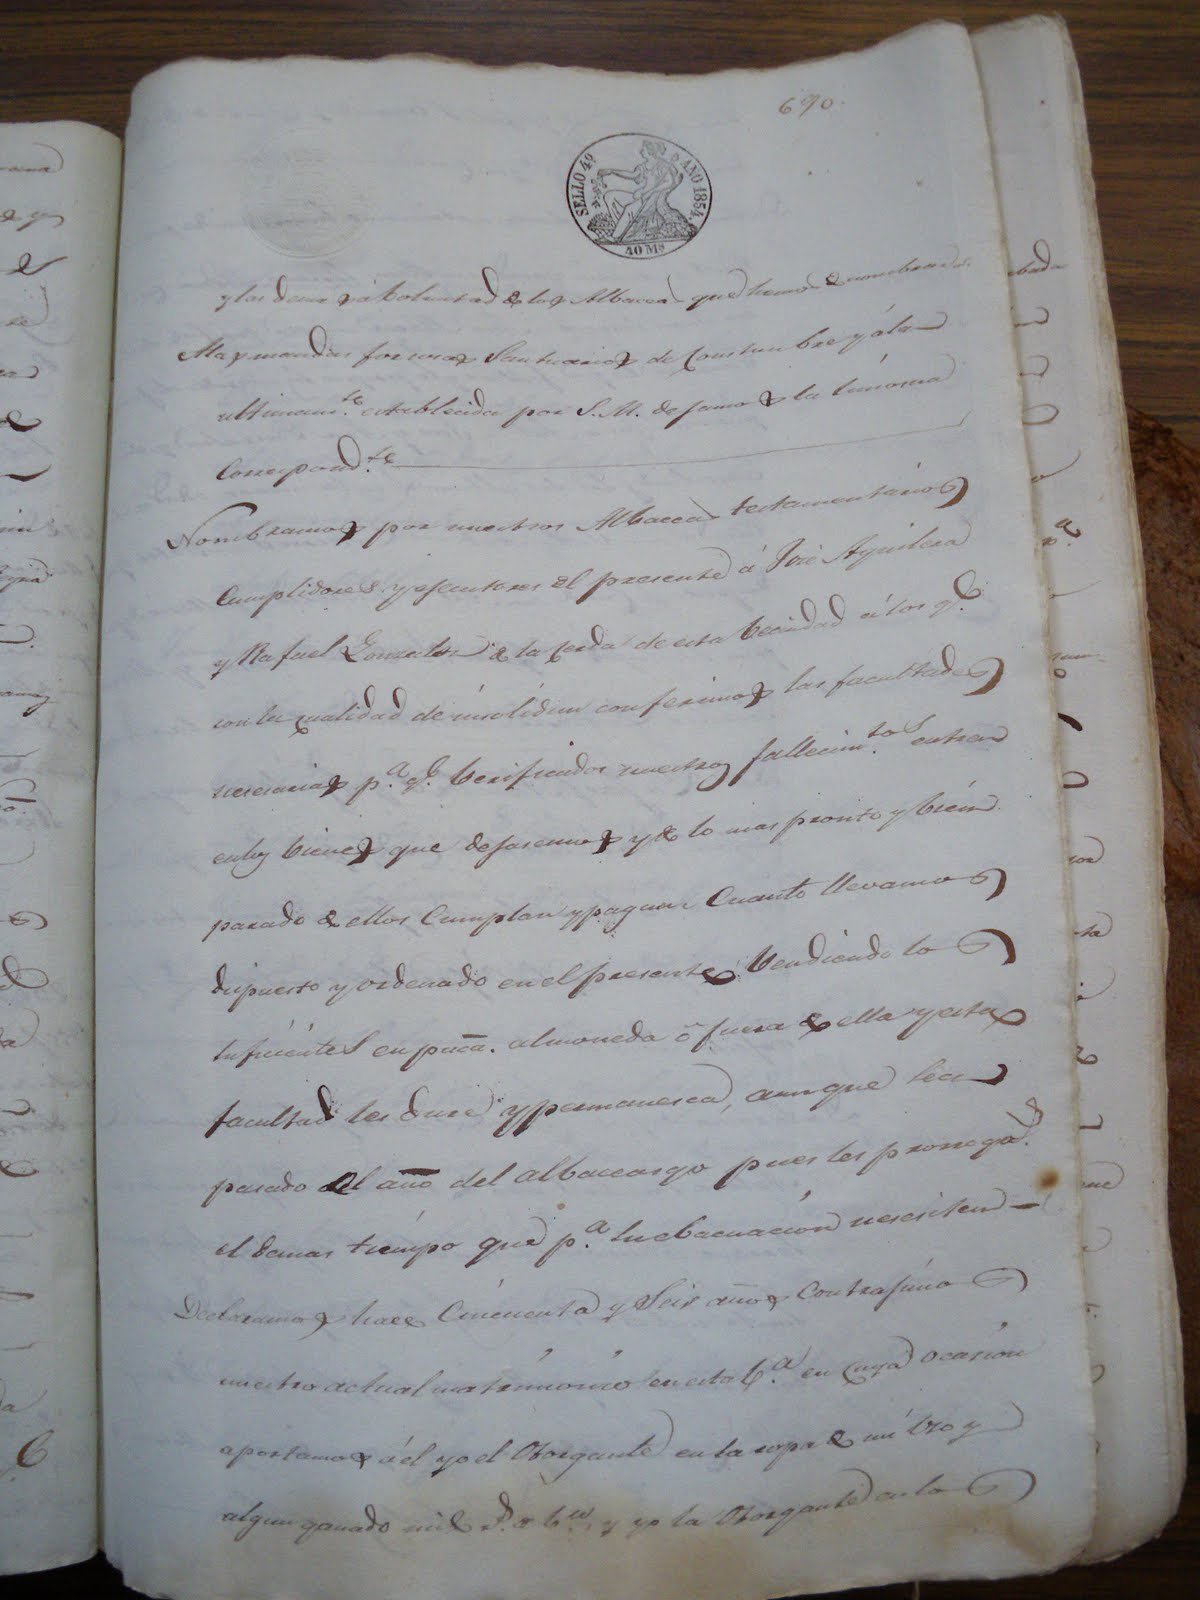 690.
SELLO 4º AÑO 1854.
40 Ms
y las demas á boluntad de los Albaceas que hemos de nombrar
A las mandas forsosas Santuarios de Costumbre y á la
ultimamte. establecida por S. M. dejamos la limosna
Correspondte.
Nombramos por nuestros Albaceas testamentarios
Cumplidores y ejecutores del presente á José Aguilera
y Rafael Gonzales de la Cerda de esta becindad á los qe.
con la cualidad de insolidun conferimos las facultades
nesesarias pa. qe. berificados nuestros fallecimtos. entren
en los bienes que dejaremos y de lo mas pronto y bien
parado de ellos Cumplan y paguen Cuanto llevamos
dispuesto y ordenado en el presente bendiendo lo
suficiente en puca. almoneda ó fuera de ella y esta
facultad les dure y permanesca, aunque sea
pasado el año del albaceasgo pues les prorrogas.
el demas tiempo que pa. su ebacuacion nesesiten
Declaramos hace Cincuenta y Seis años Contrajimos
nuestro actual matrimonio en esta ba. en cuya ocasion
aportamos á él yo el Otorgante en la ropa de mi uso y
algun ganado mil rs. de bn. y yo la Otorgante en lo